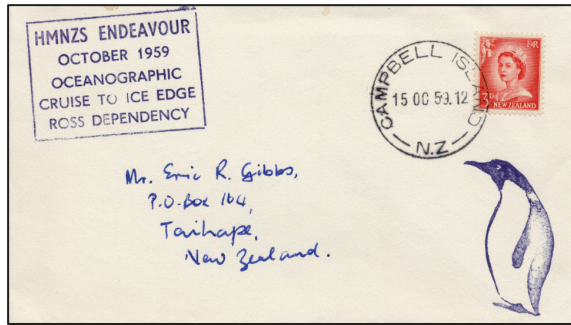 HMNZS ENDEAVOUR
OCTOBER 1959
OCEANOGRAPHIC
CRUISE TO ICE EDGE
ROSS DEPENDENCY
CAMPBELL ISLAND
15 OC 59.12
N.Z
E R
3D
NEW ZEALAND
Mr. Eric R. Gibbs,
P.O. Box 164,
Taihape,
New Zealand.